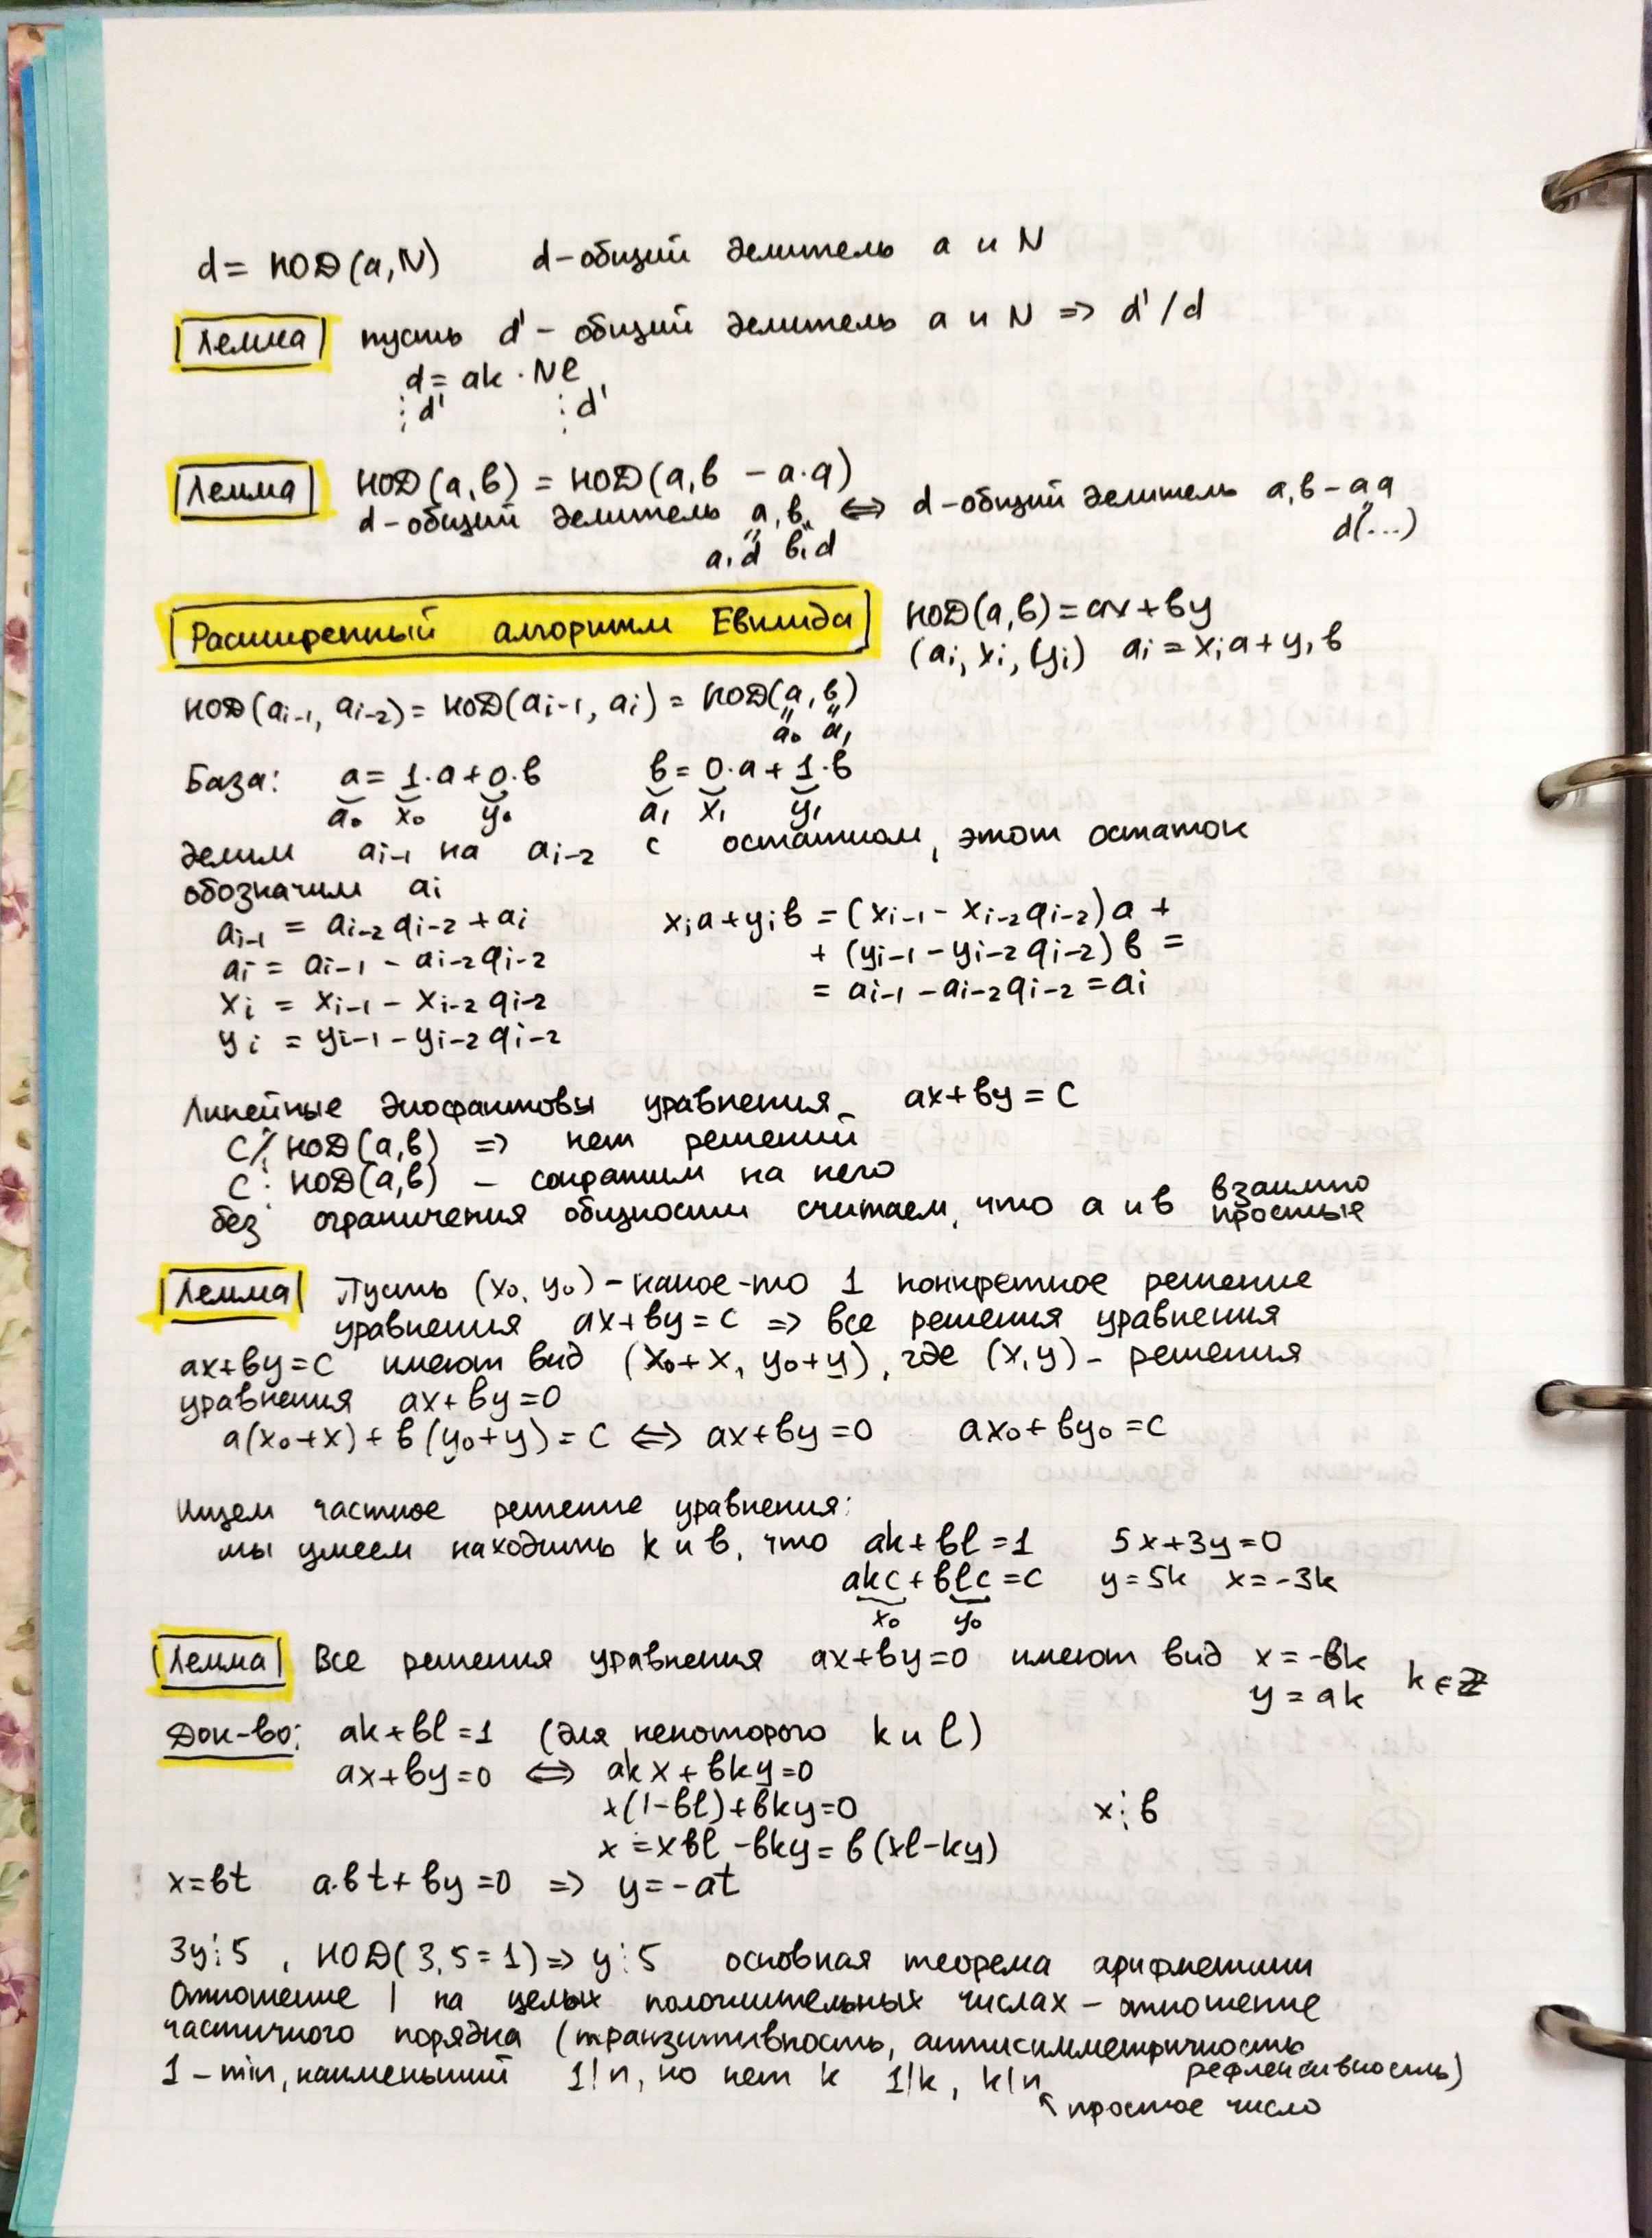 d = НОД(a, N)   d - общий делитель a и N
Лемма   пусть d' - общий делитель a и N => d' / d
d = ak · Nl
⋮ d'   ⋮ d'
Лемма   НОД(a, в) = НОД(a, в - a·q)
d - общий делитель a, в <=> d - общий делитель a, в - aq
a₁d   в₁d   d(...)
Расширенный алгоритм Евклида   НОД(a, в) = ax + вy
(aᵢ, xᵢ, (yᵢ)   aᵢ = xᵢa + yᵢв
НОД(aᵢ₋₁, aᵢ₋₂) = НОД(aᵢ₋₁, aᵢ) = НОД(a, в)
a₀   a₁
База:   a = 1·a + 0·в   в = 0·a + 1·в
a₀   x₀   y₀   a₁   x₁   y₁
делим aᵢ₋₁ на aᵢ₋₂ с остатком, этот остаток
обозначим aᵢ
aᵢ₋₁ = aᵢ₋₂ qᵢ₋₂ + aᵢ   xᵢa + yᵢв = (xᵢ₋₁ - xᵢ₋₂qᵢ₋₂)a +
aᵢ = aᵢ₋₁ - aᵢ₋₂qᵢ₋₂   + (yᵢ₋₁ - yᵢ₋₂qᵢ₋₂)в =
xᵢ = xᵢ₋₁ - xᵢ₋₂qᵢ₋₂   = aᵢ₋₁ - aᵢ₋₂qᵢ₋₂ = aᵢ
yᵢ = yᵢ₋₁ - yᵢ₋₂qᵢ₋₂
Линейные диофантовы уравнения_   ax + вy = c
c ⋮̸ НОД(a, в) => нет решений
c ⋮ НОД(a, в) - сократим на него
без ограничения общности считаем, что a и в взаимно простые
Лемма   Пусть (x₀, y₀) - какое-то 1 конкретное решение
уравнения ax + вy = c => все решения уравнения
ax + вy = c имеют вид (x₀ + x, y₀ + y), где (x, y) - решения
уравнения ax + вy = 0
a(x₀ + x) + в(y₀ + y) = c <=> ax + вy = 0   ax₀ + вy₀ = c
Ищем частное решение уравнения:
мы умеем находить k и в, что ak + вl = 1   5x + 3y = 0
akc + вlc = c   y = 5k   x = -3k
x₀   y₀
Лемма   Все решения уравнения ax + вy = 0 имеют вид x = -вk
y = ak   k ∈ ℤ
Док-во:   ak + вl = 1   (для некоторого k и l)
ax + вy = 0 <=> akx + вky = 0
x(1 - вl) + вky = 0   x ⋮ в
x = xвl - вky = в(xl - ky)
x = вt   a·вt + вy = 0 => y = -at
3y ⋮ 5, НОД(3, 5 = 1) => y ⋮ 5   основная теорема арифметики
Отношение | на целых положительных числах - отношение
частичного порядка (транзитивность, антисимметричность
рефлексивность)
1 - min, наименьший   1|n, но нет k   1|k, k|n
↖ простое число